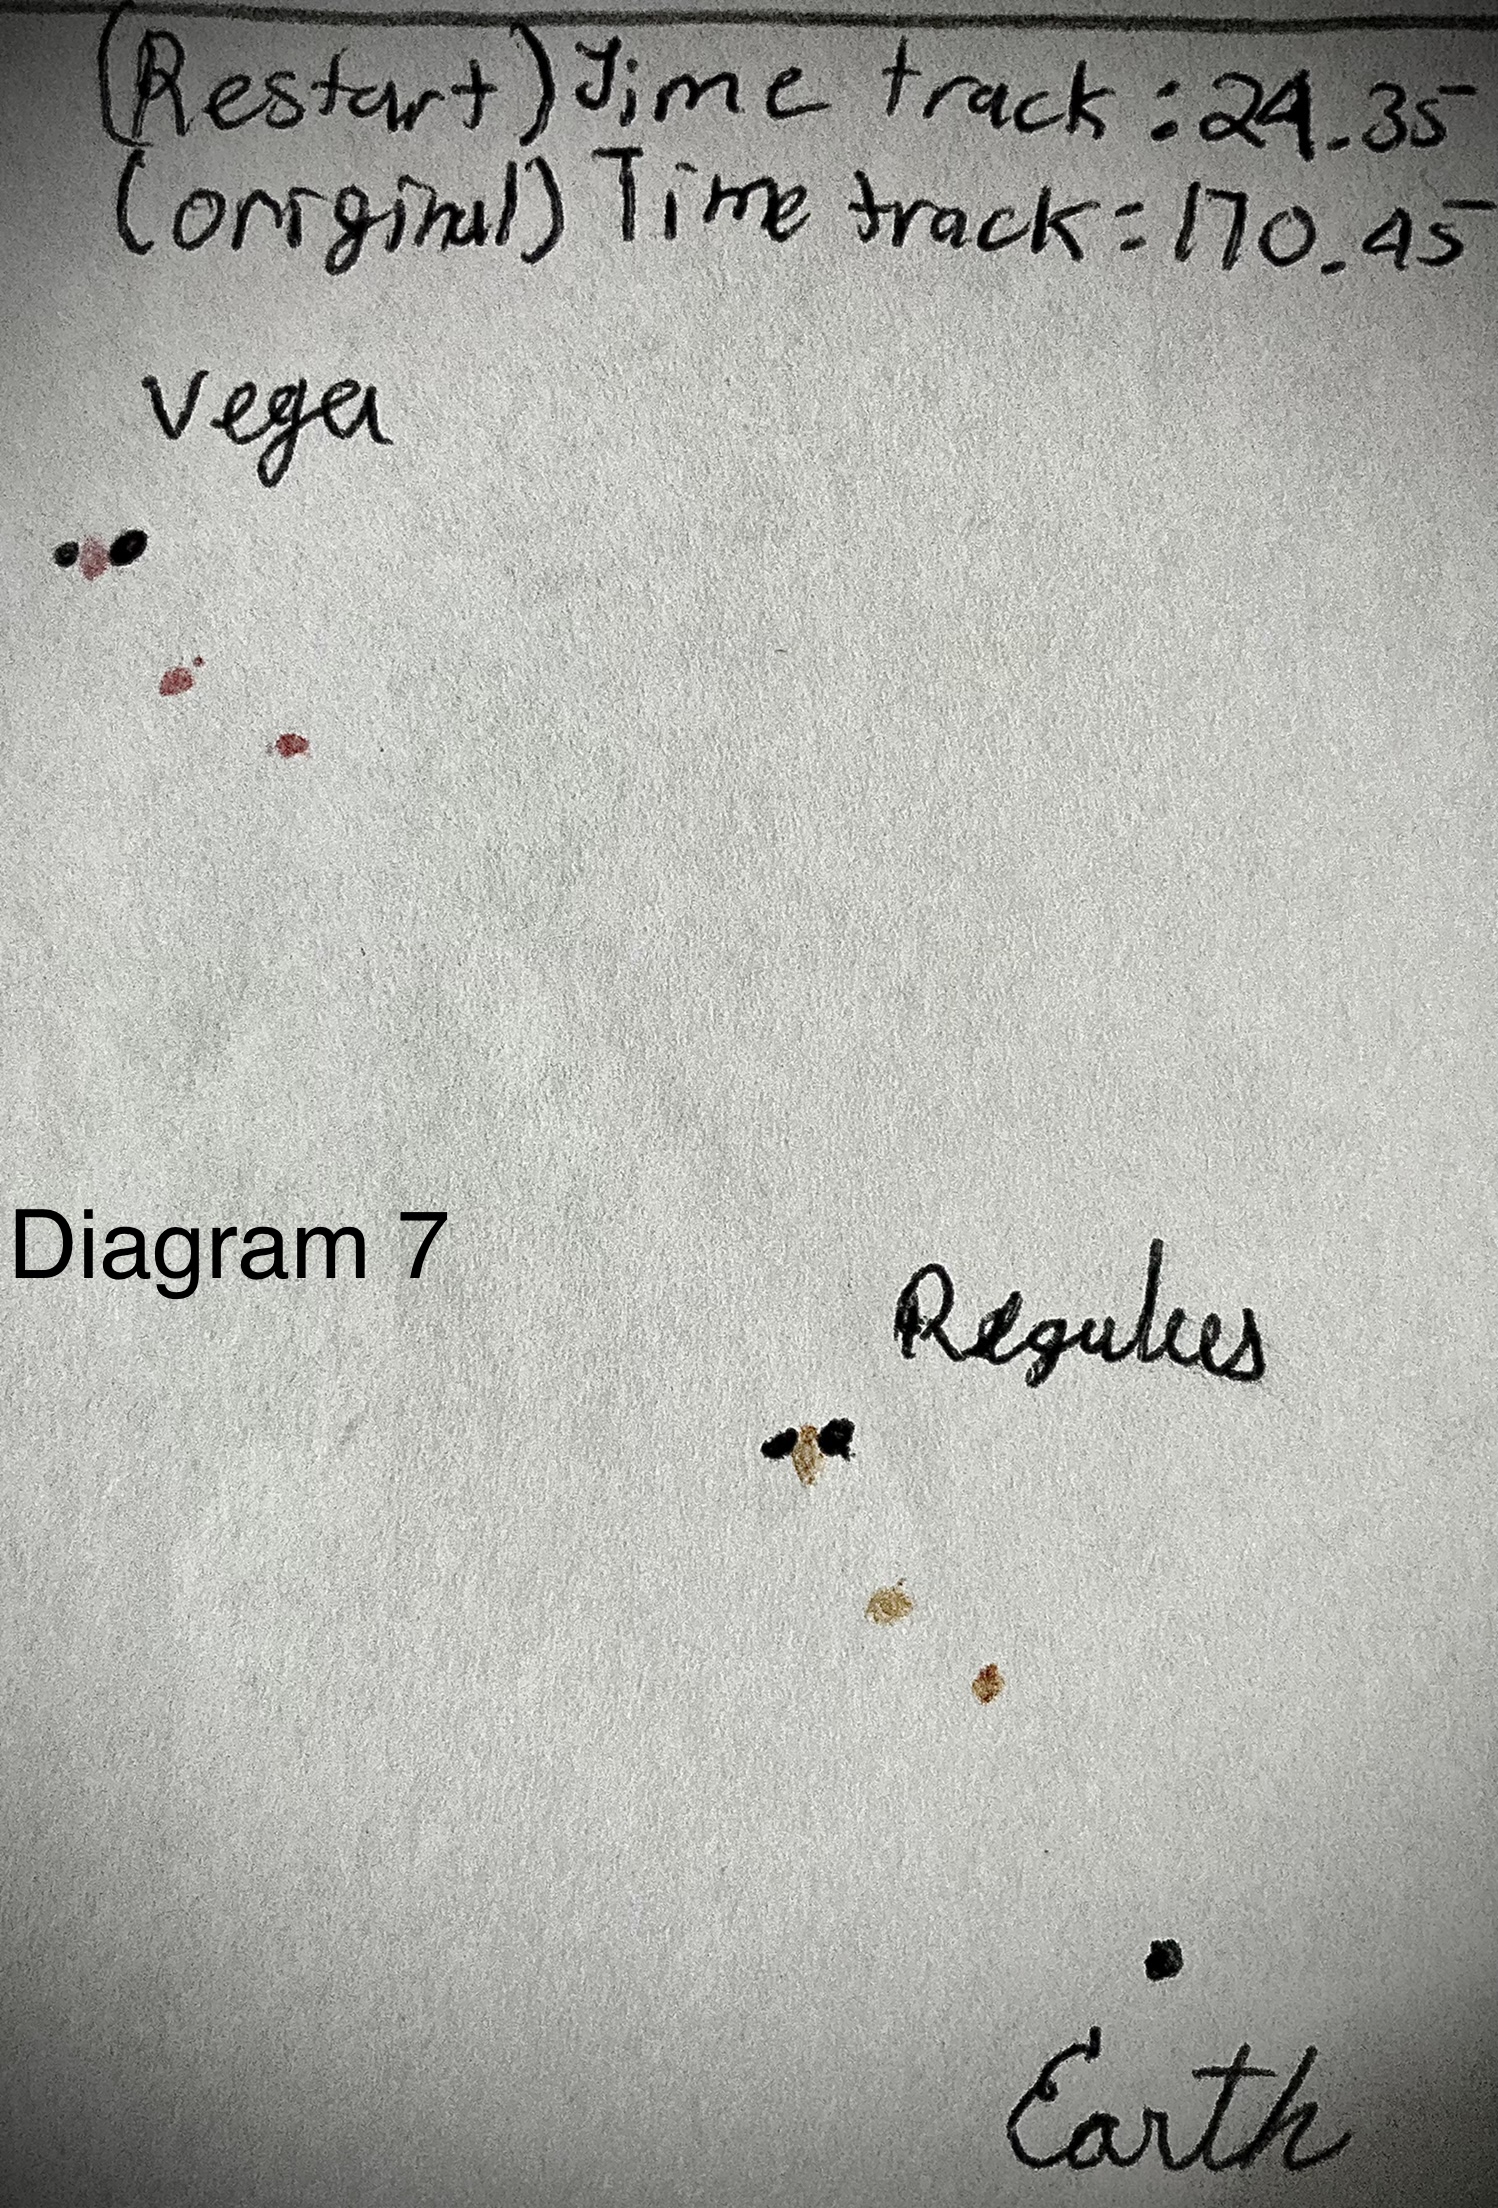 (Restart) Time track: 24.35
(original) Time track: 170.45
Vega
Diagram 7
Regulus
Earth